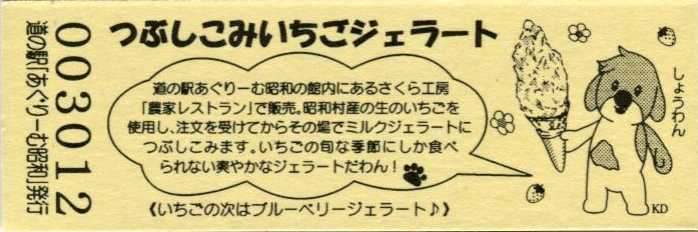 つぶしこみいちごジェラート
道の駅あぐりーむ昭和の館内にあるさくら工房
「農家レストラン」で販売。昭和村産の生のいちごを
使用し、注文を受けてからその場でミルクジェラートに
つぶしこみます。いちごの旬な季節にしか食べ
られない爽やかなジェラートだわん!
《いちごの次はブルーベリージェラート♪》
しょうわん
し
KD
003012
道の駅「あぐりーむ昭和」発行